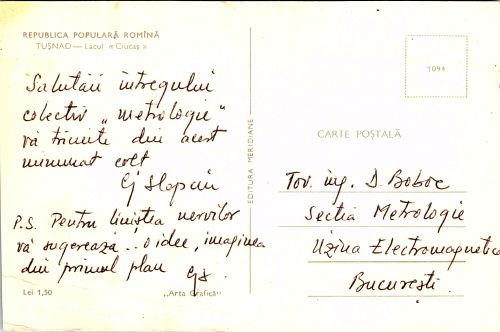 REPUBLICA POPULARĂ ROMÎNĂ
TUȘNAD — Lacul « Ciucaș »
Salutări întregului
colectiv „metrologie"
vă trimite din acest
minunat colț
P.S. Pentru liniștea nervilor
vă sugerează.. o idee, imaginea
din primul plan
Lei 1,50
„Arta Grafică"
EDITURA MERIDIANE
1094
CARTE POȘTALĂ
Tov. ing. D. Boboc
Secția Metrologie
Uzina Electromagnetica
București